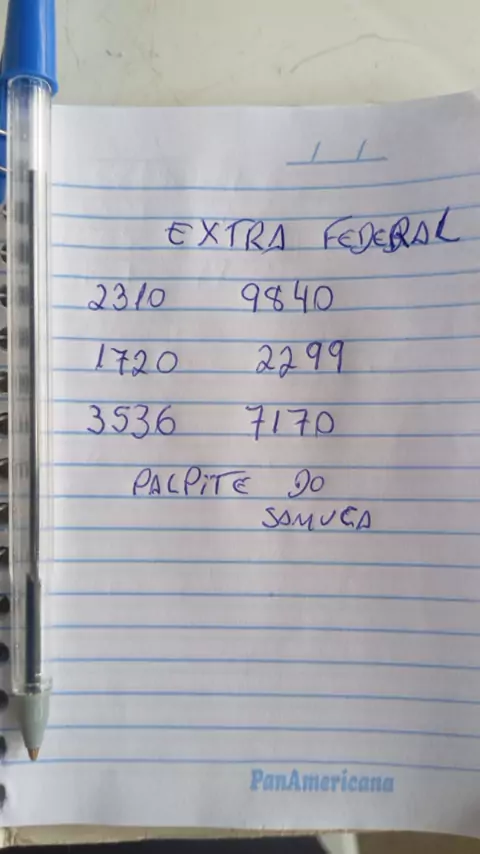 EXTRA FEDERAL
2310 9840
1720 2299
3536 7170
PALPITE DO
SAMUCA
PanAmericana